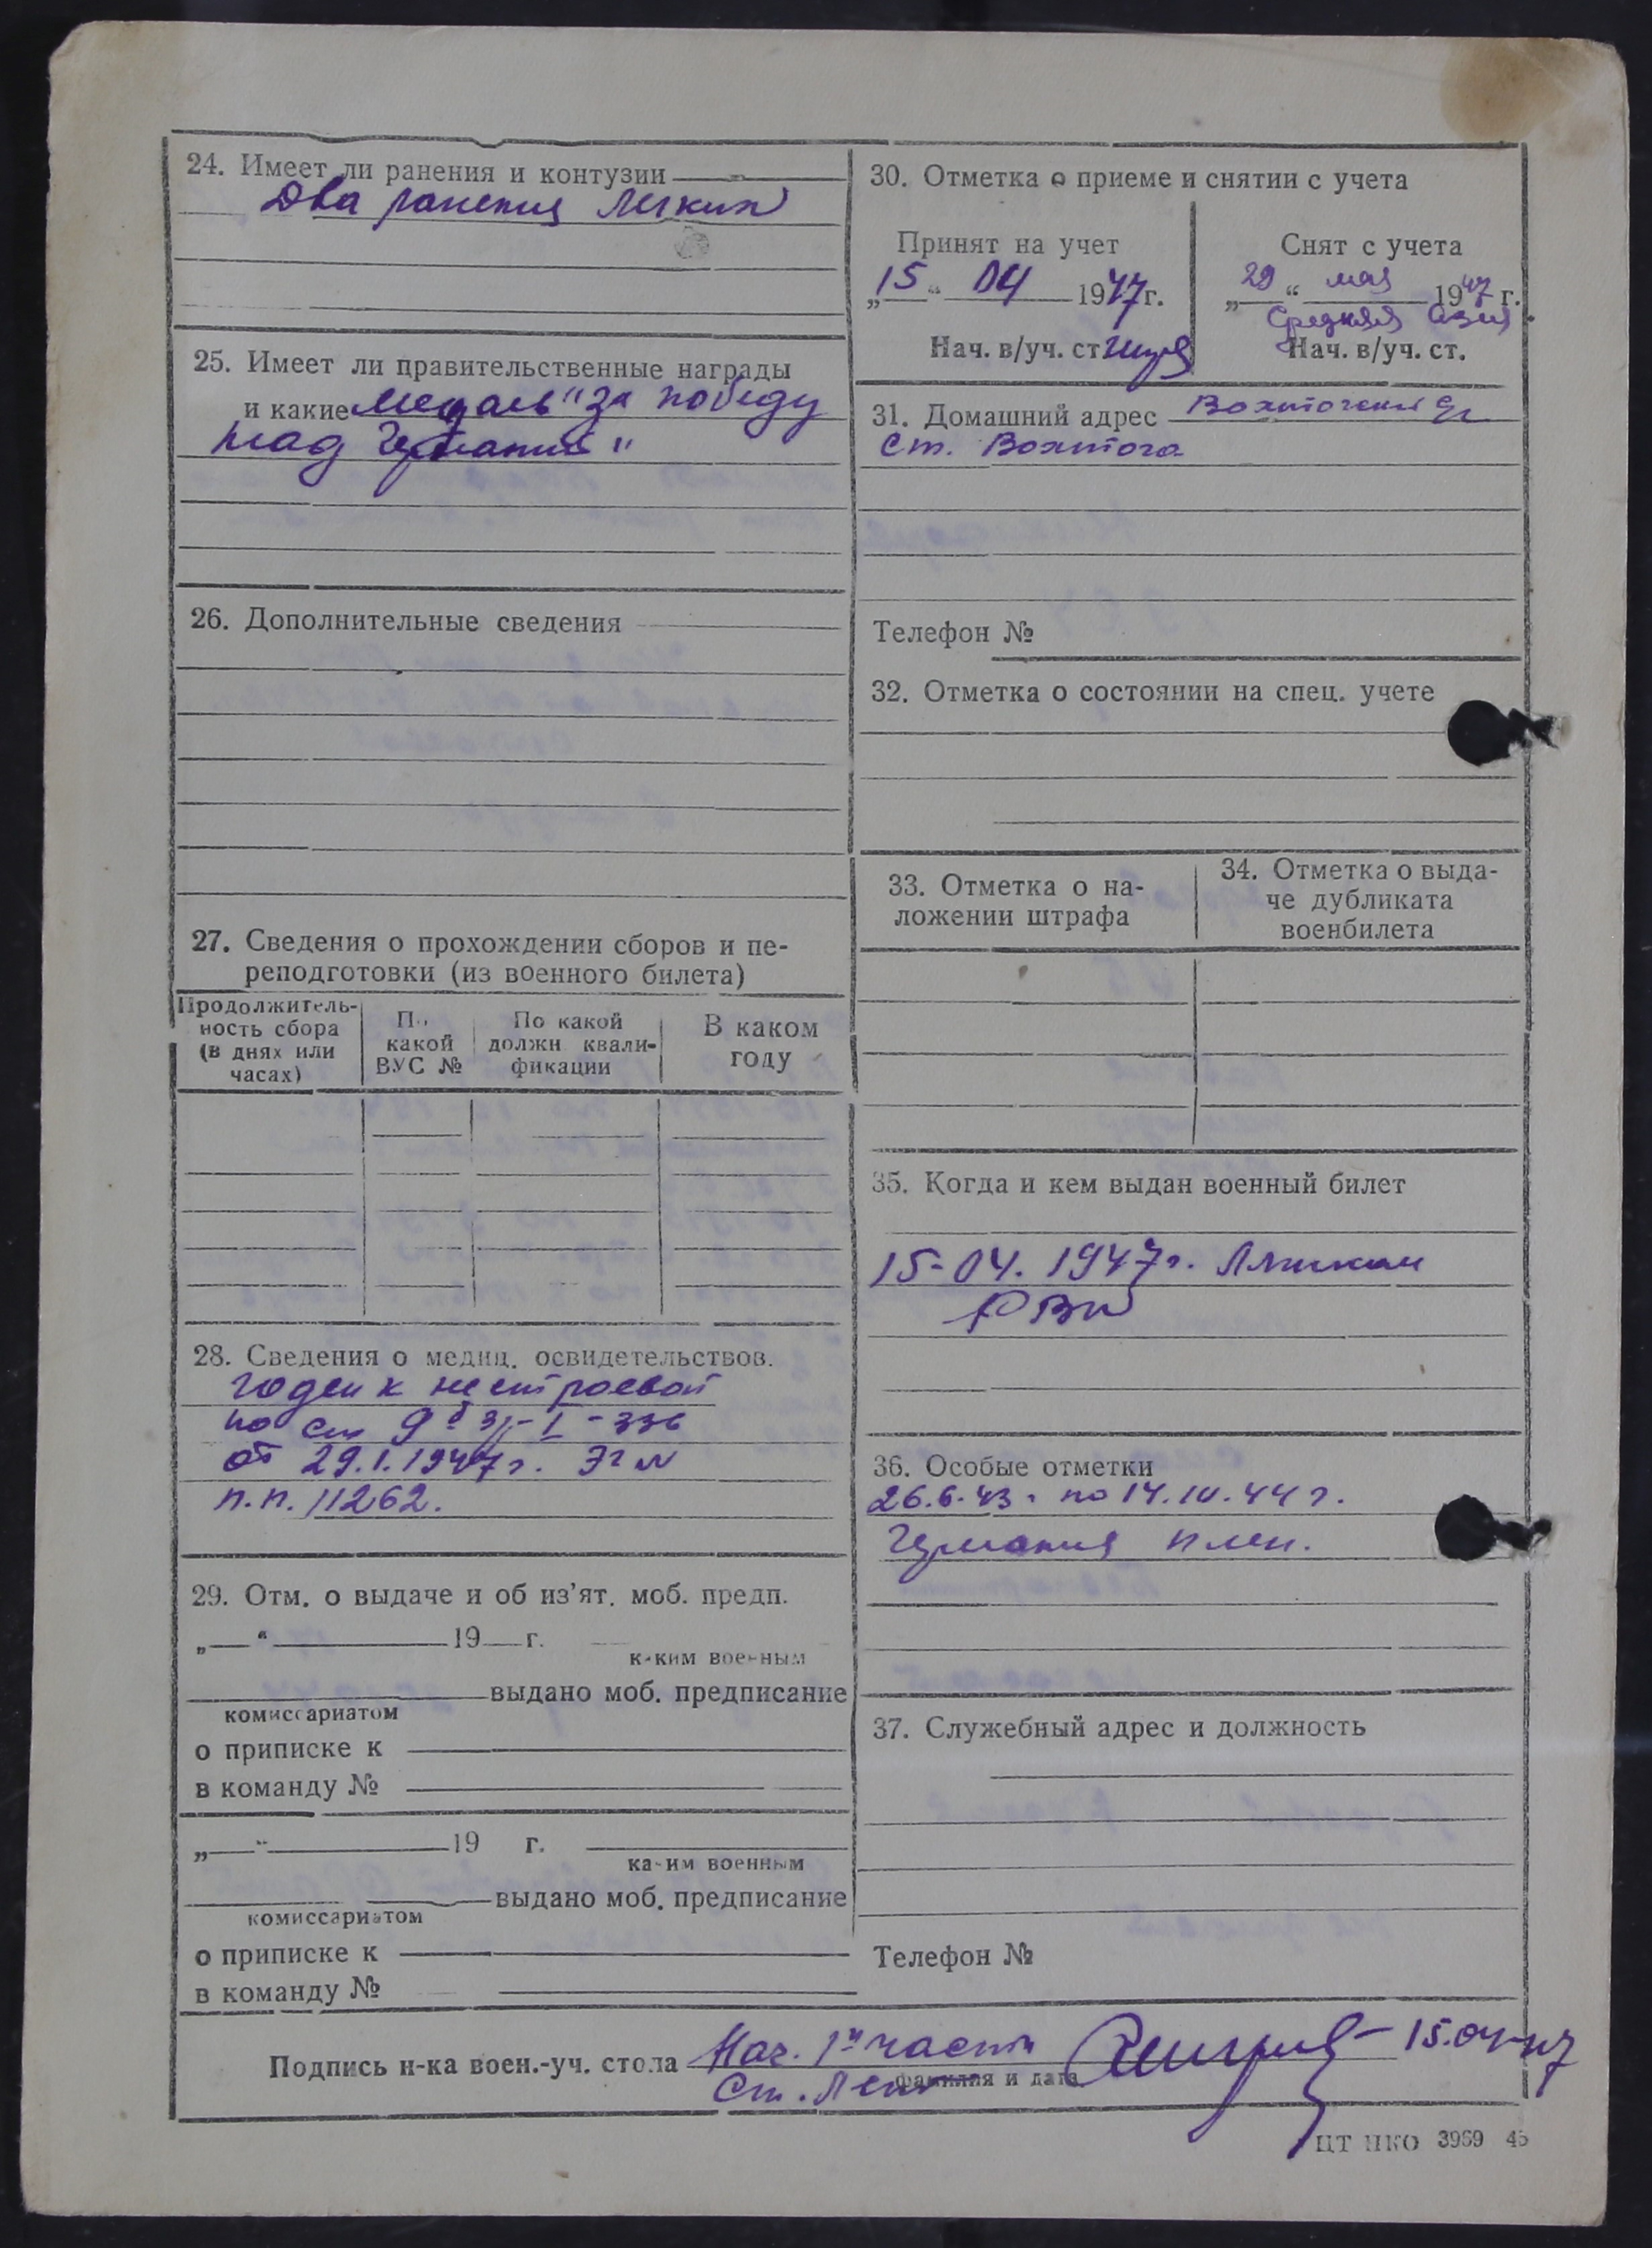 24. Имеет ли ранения и контузии
Два ранения легких
25. Имеет ли правительственные награды
и какие медаль "За победу
над Германией"
26. Дополнительные сведения
27. Сведения о прохождении сборов и пе-
реподготовки (из военного билета)
Продолжитель-
ность сбора
(в днях или
часах)
По
какой
ВУС №
По какой
должн квали-
фикации
В каком
году
28. Сведения о медиц. освидетельствов.
годен к нестроевой
по ст 9б
от 29.I.1947г.
п.п. 11262.
29. Отм. о выдаче и об из'ят. моб. предп.
„ “ 19 г.
каким военным
выдано моб. предписание
комиссариатом
о приписке к
в команду №
„ “ 19 г.
каким военным
выдано моб. предписание
комиссариатом
о приписке к
в команду №
30. Отметка о приеме и снятии с учета
Принят на учет
„15“ 04 1947г.
Нач. в/уч. ст
Снят с учета
„29“ мая 1947 г.
Средняя Азия
Нач. в/уч. ст.
31. Домашний адрес
ст. Вохтога
Телефон №
32. Отметка о состоянии на спец. учете
33. Отметка о на-
ложении штрафа
34. Отметка о выда-
че дубликата
военбилета
35. Когда и кем выдан военный билет
15-04. 1947г.
РВК
36. Особые отметки
26.6.43г по 14.10.44г.
Германия плен.
37. Служебный адрес и должность
Телефон №
Подпись н-ка воен.-уч. стола Нач. 1й части 15.04-47
фамилия и дата
Ст. Лен
ЦТ НКО 3969 45